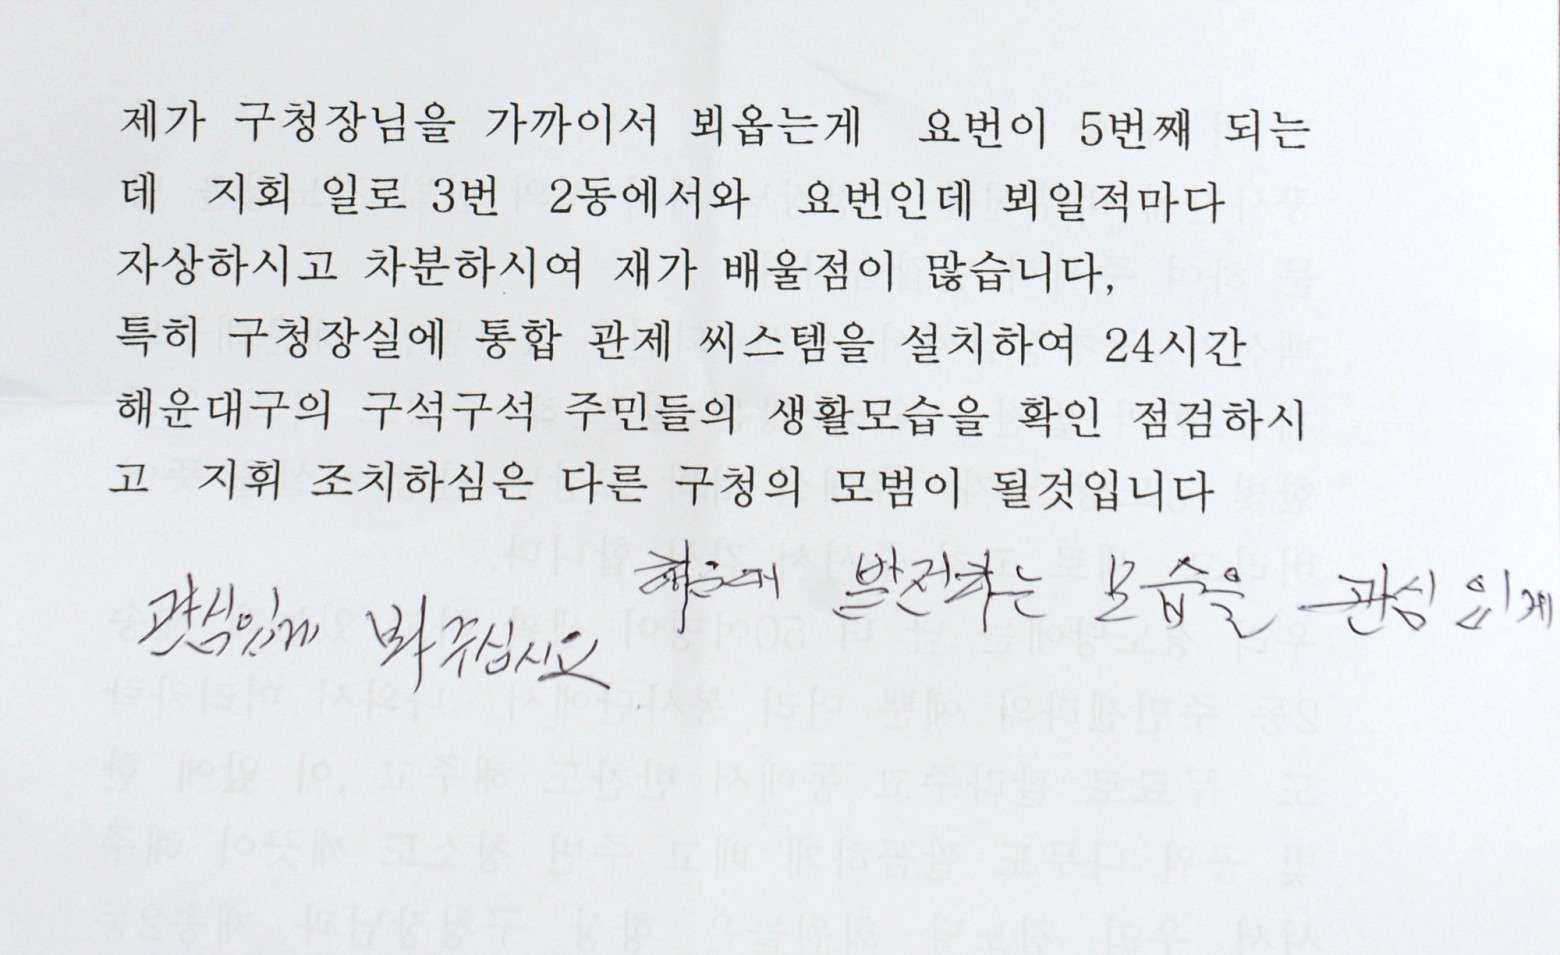 제가 구청장님을 가까이서 뵈옵는게 요번이 5번째 되는
데 지회 일로 3번 2동에서와 요번인데 뵈일적마다
자상하시고 차분하시여 재가 배울점이 많습니다,
특히 구청장실에 통합 관제 씨스템을 설치하여 24시간
해운대구의 구석구석 주민들의 생활모습을 확인 점검하시
고 지휘 조치하심은 다른 구청의 모범이 될것입니다
발전하는 모습을 관심 있게
관심있게 봐 주십시요